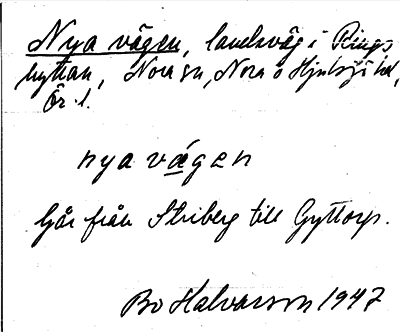 Nya vägen, landsväg i Rings
hyttan, Nora sn, Nora o Hjulsjö hd,
Ör. l.
nya vägen
Går från Striberg till Gyttorp.
Bo Halvarson 1947